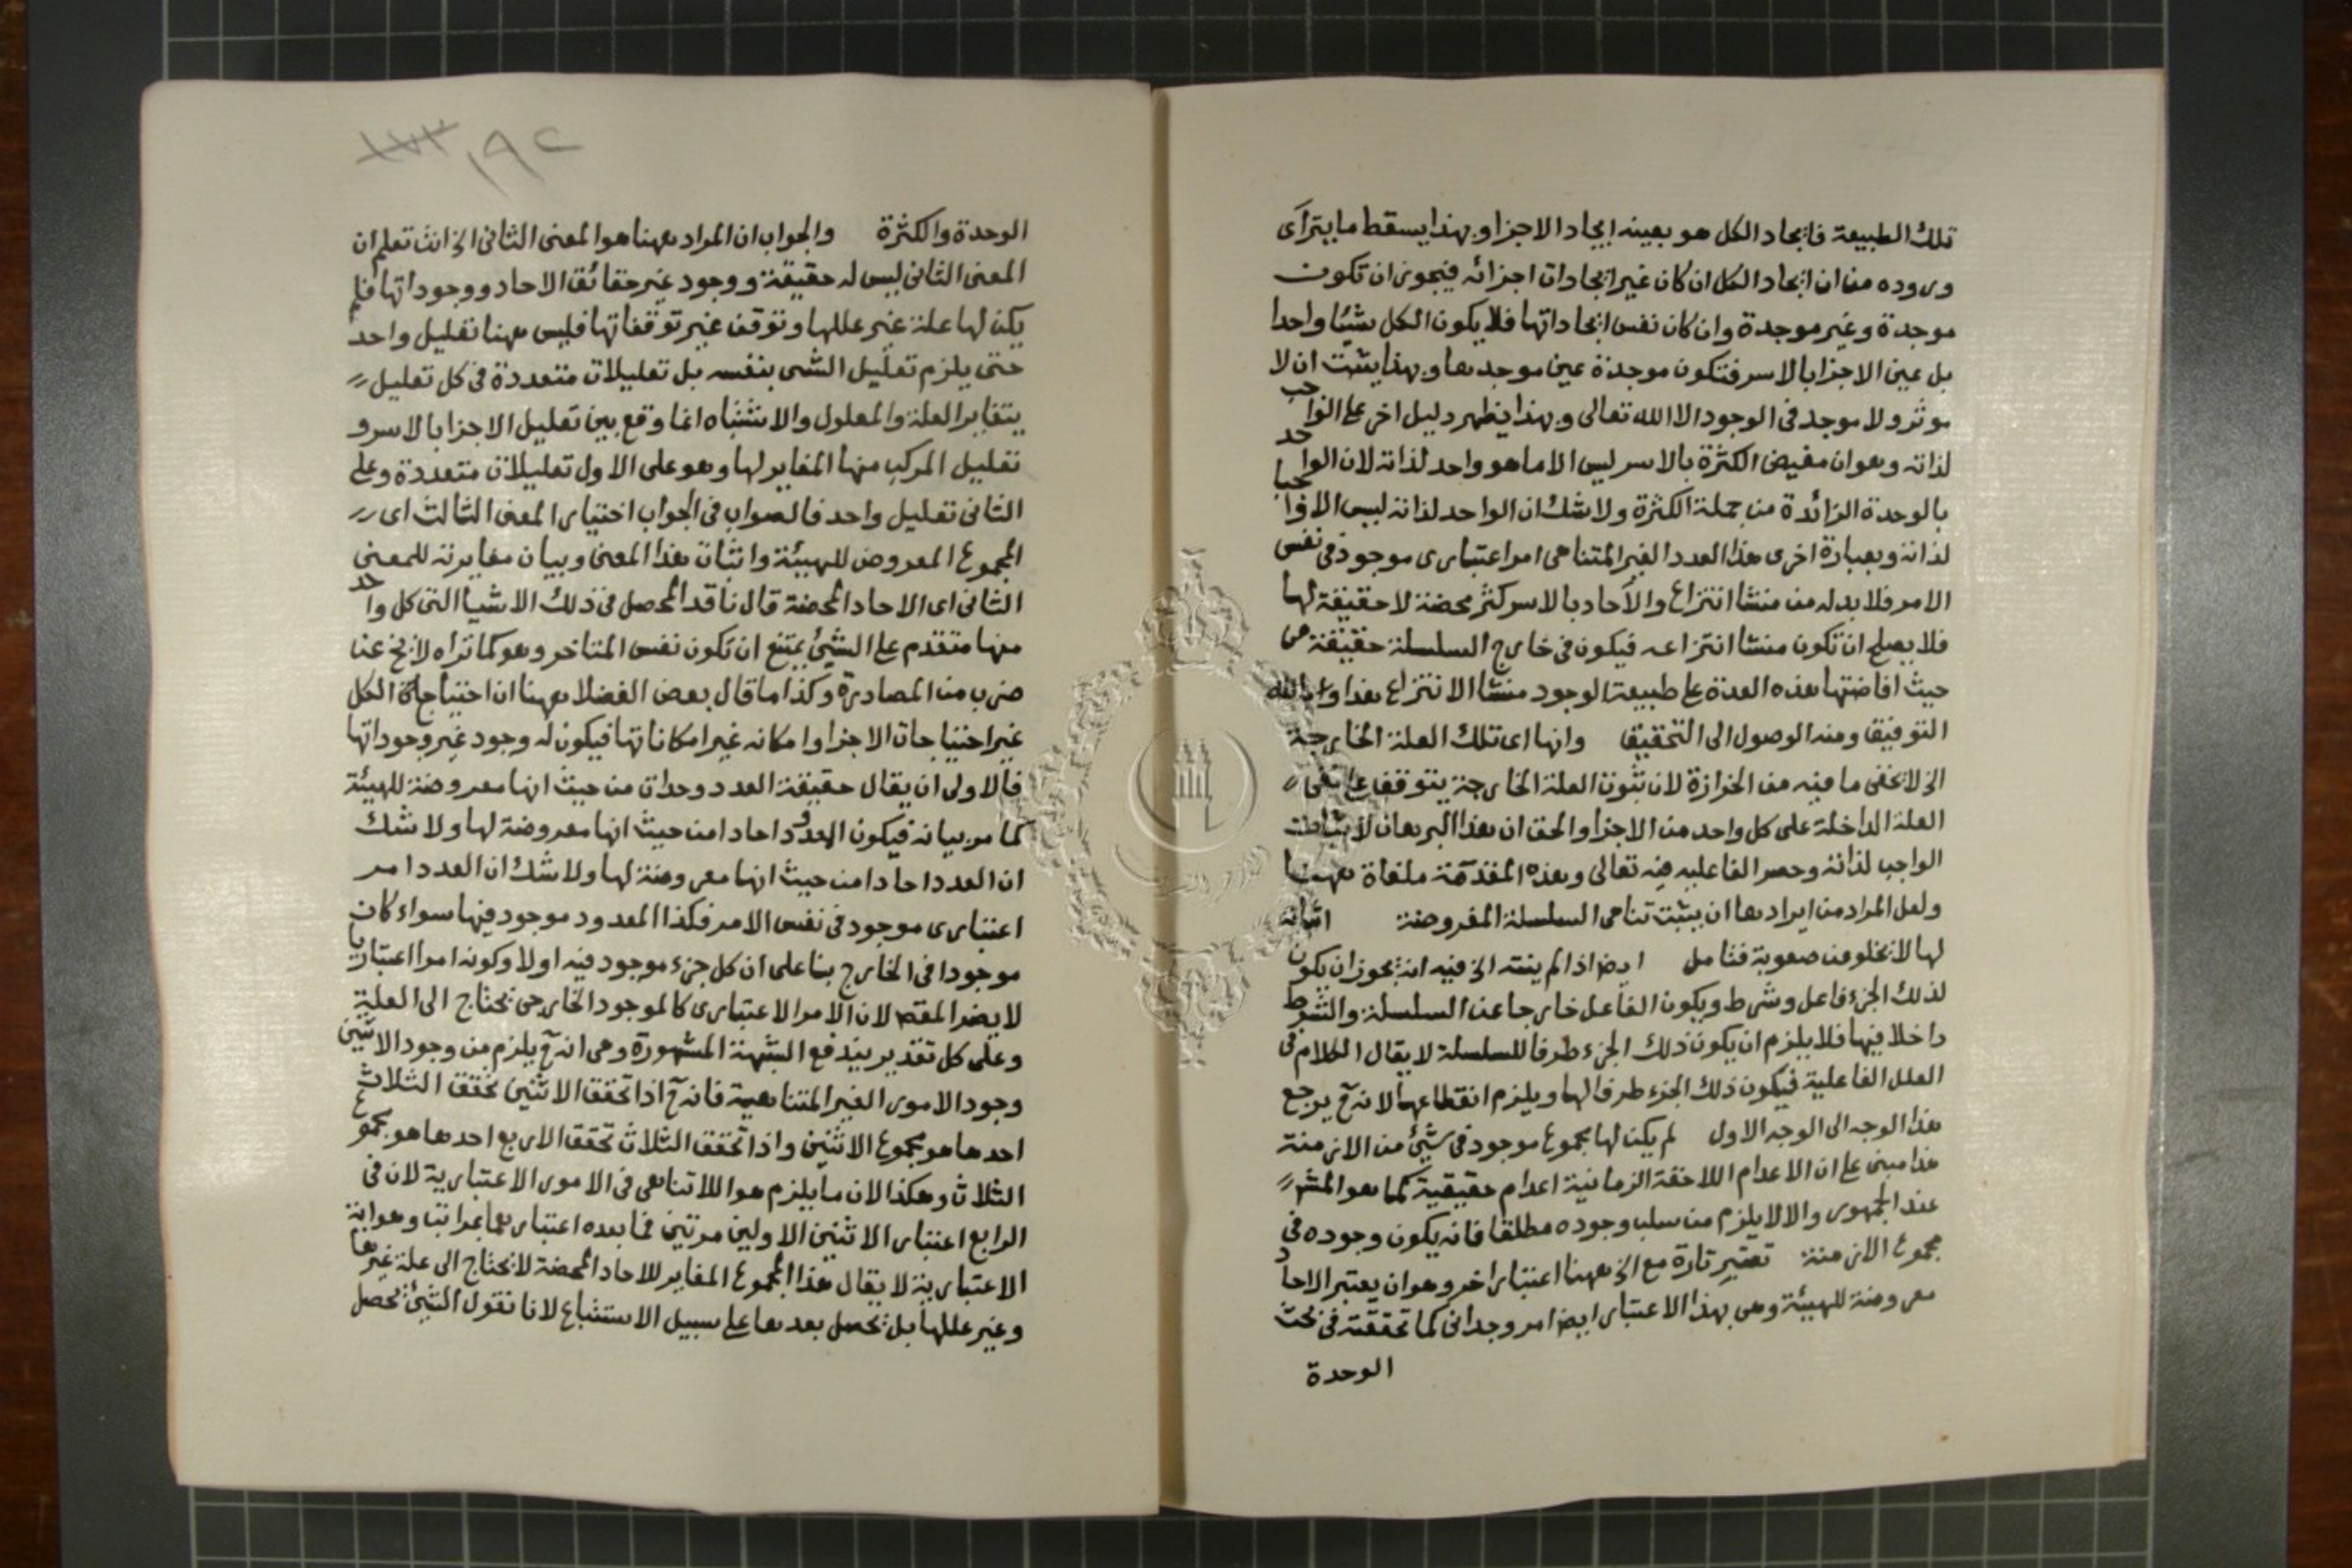 تلك الطبيعة فايجاد الكل هو بعينه ايجاد الاجزا وبهذا يسقط ما يترآى
وروده من ان ايجاد الكل ان كان غير ايجادات اجزائه فيجوز ان تكون
موجدة وغير موجدة وان كان نفس ايجاداتها فلا يكون الكل شيئا واحدا
بل عين الاجزا بالاسر فتكون موجدة عين موجدها وبهذا يثبت ان لا
موثر ولا موجد فى الوجود الا الله تعالى وبهذا يظهر دليل اخر على الواجب
لذاته وهو ان مفيض الكثرة بالاسر ليس الا ما هو واحد لذاته لان الواحد
بالوحدة الزائدة من جملة الكثرة ولا شك ان الواحد لذاته ليس الا واجبا
لذاته وبعبارة اخرى هذا العدد الغير المتناهى امر اعتبارى موجود فى نفس
الامر فلا بد له من منشا انتزاع والآحاد بالاسر كثر محضة لا حقيقة لها
فلا يصلح ان تكون منشا انتزاعه فيكون فى خارج السلسلة حقيقة من
حيث افاضتها هذه العدة على طبيعة الوجود منشا الانتزاع هذا والله
التوفيق ومنه الوصول الى التحقيق وانها اى تلك العلة الخارجة
الخ لا يخفى ما فيه من الحزازة لان ثبوت العلة الخارجة يتوقف على نفى
العلة الداخلة على كل واحد من الاجزا والحق ان هذا البرهان لاثبات
الواجب لذاته وحصر الفاعليه فيه تعالى وهذه المقدمة ملغاة ههنا
ولعل المراد من ايرادها ان يثبت تناهى السلسلة المفروضة اثباته
لها لا يخلو من صعوبة فتامل ايض اذا لم ينته الخ فيه انه يجوز ان يكون
لذلك الجزء فاعل وشرط ويكون الفاعل خارجا عن السلسلة والشرط
داخلا فيها فلا يلزم ان يكون ذلك الجزء طرفا للسلسلة لا يقال الكلام فى
العلل الفاعلية فيكون ذلك الجزء طرفا لها ويلزم انقطاعها لانه ح يرجع
هذا الوجه الى الوجه الاول لم يكن لها مجموع موجود فى شئ من الازمنة
هذا مبنى على ان الاعدام اللاحقة الزمانية اعدام حقيقية كما هو المشهـ
عند الجمهور والا لا يلزم من سلب وجوده مطلقا فانه يكون وجوده فى
مجموع الازمنة تعتبر تارة مع الخ ههنا اعتبار اخر وهو ان يعتبر الاحاد
معروضة للهيئة وهى بهذا الاعتبار ايض امر وجدانى كما تحققته فى بحث
الوحدة
١٩٢
الوحدة والكثرة والجواب ان المراد ههنا هو المعنى الثانى الخ انت تعلم ان
المعنى الثانى ليس له حقيقة ووجود غير حقائق الاحاد ووجوداتها فلم
يكن لها علة غير عللها وتوقف غير توقفاتها فليس ههنا تعليل واحد
حتى يلزم تعليل الشى بنفسه بل تعليلات متعددة فى كل تعليل
يتغاير العلة والمعلول والاشتباه انما وقع بين تعليل الاجزا بالاسر و
تعليل المركب منها المغاير لها وهو على الاول تعليلات متعددة وعلى
الثانى تعليل واحد فالصواب فى الجواب اختيار المعنى الثالث اى
المجموع المعروض للهيئة واثبات هذا المعنى وبيان مغايرته للمعنى
الثانى اى الاحاد المحضة قال ناقد المحصل فى ذلك الاشيا التى كل واحد
منها متقدم على الشئ يمتنع ان تكون نفس المتاخر وهو كما تراه لا يخ عن
ضرب من المصادرة وكذا ما قال بعض الفضلا ههنا ان احتياجات الكل
غير احتياجات الاجزا وامكانه غير امكاناتها فيكون له وجود غير وجوداتها
فالاولى ان يقال حقيقة العدد وحدات من حيث انها معروضة للهيئة
كما مر بيانه فيكون العدد احادا من حيث انها معروضة لها ولا شك
ان العدد احادا من حيث انها معروضة لها ولا شك ان العدد امر
اعتبارى موجود فى نفس الامر فكذا المعدود موجود فيها سواء كان
موجودا فى الخارج بنا على ان كل جزء موجود فيه او لا وكونه امرا اعتباريا
لا يضر المقص لان الامر الاعتبارى كالموجود الخارجى يحتاج الى العلة
وعلى كل تقدير يندفع الشبهة المشهورة وهى انه ح يلزم من وجود الاثنين
وجود الامور الغير المتناهية فانه ح اذا تحقق الاثنين تحقق الثلاث
احدها هو مجموع الاثنين واذا تحقق الثلاث تحقق الاربع احدها هو مجموع
الثلاث وهكذا لان ما يلزم هو اللاتناهى فى الامور الاعتبارية لان فى
الرابع اعتبار الاثنين الاولين مرتين فما بعده اعتبار بها مراتب وهو اية
الاعتبارية لا يقال هذا المجموع المغاير للاحاد المحضة لا يحتاج الى علة غيرها
وغير عللها بل يحصل بعدها على سبيل الاستتباع لانا نقول الشئ يحصل